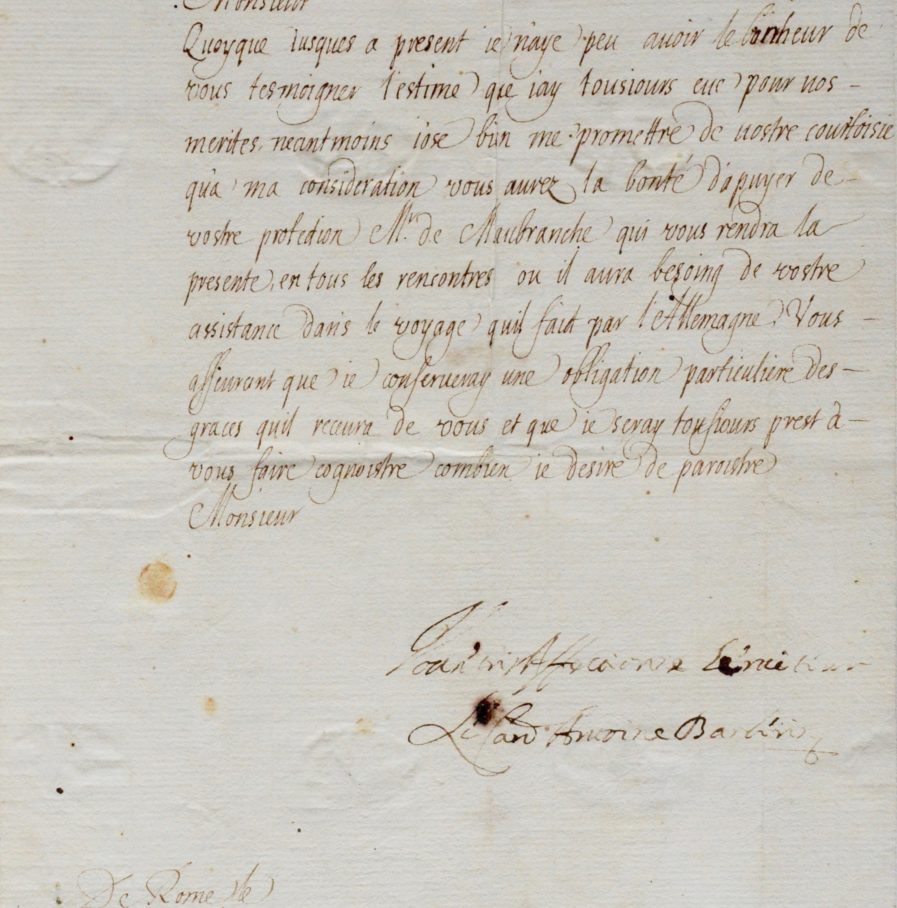 Monsieur
Quoyque iusques a present ie n'aye peu avoir le bonheur de
vous tesmoigner l'estime que iay tousiours eue pour vos
merites, neantmoins iose bien me promettre de vostre courtoisie
qu'a ma consideration vous aurez la bonté d'apuyer de
vostre protection Mr. de Maubranche qui vous rendra la
presente, en tous les rencontres ou il aura besoing de vostre
assistance dans le voyage quil faict par l'Allemagne. Vous
asseurant que ie conserveray une obligation particuliere des
graces quil recevra de vous et que ie seray tousiours prest a
vous faire cognoistre combien ie desire de paroistre
Monsieur
Affectionné Serviteur
Le Card Antoine Barberin
De Rome le